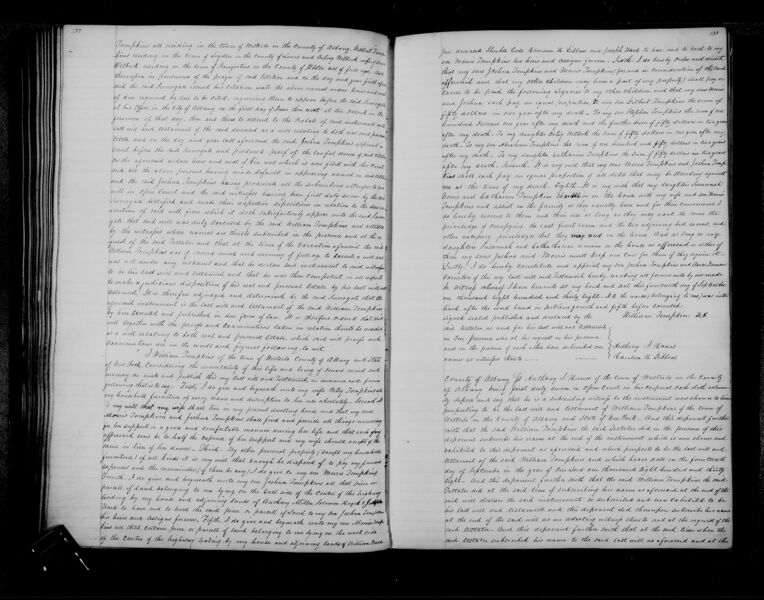 132
Tompkins all residing in the town of Westerlo in the County of Albany, Gilbert Tomp-
kins residing in the town of Leyden in the County of Lewis and Betsy Witbeck wife of
Witbeck residing in the town of Saugerties in the County of Ulster all of full age. And
thereupon in pursuance of the prayer of said Petition and on the day and year first afore
said the said Surrogate issued his citation unto the above named widow heirs and next
of kin required by law to be cited, requiring them to appear before the said Surrogate
at his Office in the City of Albany on the first day of June then next at ten o'clock in the
forenoon of that day, then and there to attend to the Probate of said instrument as the
last will and testament of the said deceased as a will relating to both real and personal
Estate, and on the day and year last aforesaid the said Joshua Tompkins appeared in
Court before the said Surrogate and produced proof of the lawful service of said Citation
on the aforesaid widow heirs and next of kin and which is now filed with the Court
and all the above persons having made default in appearing named in said Citation
and the said Joshua Tompkins having produced all the subscribing witnesses to said
will in open Court and the said witnesses having been first duly sworn by the said
Surrogate testified and made their respective depositions in relation to the due exe-
cution of said will from which it doth satisfactorily appear unto the said Surro-
gate that said will was duly executed by the said William Tompkins and attested
by the witnesses whose names are thereto subscribed in the presence and at the re-
quest of the said Testator and that at the time of the Execution aforesaid the said
William Tompkins was of sound mind and memory of full age to Execute a will and
was not under any restraint and that he declared said instrument to said witnesses
to be his last will and testament and that he was then competent in all respects
to make a judicious disposition of his real and personal Estate by his last will and
testament. It is therefore adjudged and determined by the said Surrogate that the
aforesaid instrument is the last will and testament of the said William Tompkins
by him Executed and published in due form of law. It is therefore ordered that said
will together with the proofs and examinations taken in relation thereto be recorded
as a will relating to both real and personal Estate, which said will proofs and
examinations are in the words and figures following, to wit,
I William Tompkins of the town of Westerlo County of Albany and State
of New York Considering the uncertainty of this life and being of sound mind and
memory do make and publish this my last will and testament, in manner and form
following that is to say; First, I do give and bequeath unto my wife Betsy Tompkins all
my household furniture of every name and description to her use absolutely. Second It
is my will that my wife shall live in my present dwelling house and that my sons
Morris Tompkins and Joshua Tompkins shall find and provide all things necessary
for her support in a good and comfortable manner during her life and that each of my
aforesaid sons be to half the expense of her support and my wife should accept of the
same in lieu of her dower. Third. My other personal property, (except my household
furniture) of all kinds it is my will that enough be disposed of to pay my funeral
expenses and the remainder, (if there be any) I do give to my son Morris Tompkins
Fourth. I do give and bequeath unto my son Joshua Tompkins all that piece or
parcell of land belonging to me lying on the East side of the Centre of the highway
leading by my house and adjoining lands of Anthony Miller Solomon
Ward to have and to hold the said piece or parcell of land to my son Joshua Tompkins
his heirs and assigns forever. Fifth. I do give and bequeath unto my son Morris Tomp
kins all that certain piece or parcell of land belonging to me lying on the west side
of the Centre of the highway leading by my house and adjoining lands of William
133
deceased and Joseph Ward to have and to hold to my
son Morris Tompkins his heirs and assigns forever. Sixth. I do hereby order and direct
that my sons Joshua Tompkins and Morris Tompkins, (found in consideration of the land
aforesaid and that my other children may have a part of my property) shall pay or
cause to be paid the following Legacies to my other children and that my sons Morris
and Joshua each pay an equal proportion, To my son Gilbert Tompkins the sum of
fifty dollars in one year after my death. To my son Stephen Tompkins the sum of one
hundred Dollars one year after my death and the further sum of fifty dollars in two years
after my death. To my daughter Betsy Witbeck the sum of fifty dollars in one year after my
death. To my son Abraham Tompkins the sum of one hundred and fifty dollars in two years
after my death. To my daughter Catharine Tompkins the sum of fifty dollars in two years
after my death. Seventh. It is my will that my sons Morris Tompkins and Joshua Tomp-
kins shall each pay an equal proportion of all debts that may be standing against
me at the time of my death. Eighth. It is my will that my daughters Susannah
and Catharine Tompkins in the house with my wife and son Morris
Tompkins and assist in the present as they usually have and for their convenience I
do hereby reserve to them and their use as long as they may want the same the
privilege of occupying the East front room and the two adjoining bed rooms and
other necessary privileges that they may need in the house. And as long as my
daughters Susannah and Catharine remain in the house as aforesaid or either of
them my sons Joshua and Morris must keep one Cow for them if they require it.
Lastly, I do hereby constitute and appoint my son Joshua Tompkins and Morris
Executors of this my last will and testament hereby revoking all former wills by me made
In witness whereof I have hereunto set my hand and seal this fourteenth day of September
one thousand eight hundred and thirty eight. N B the words, belonging to me, was inter-
lined after the word land in portions fourth and fifth before executed
signed sealed published and declared by the
William Tompkins L.S.
said testator as and for his last will and testament
in our presence who at his request in his presence
and in the presence of each other have subscribed our
names as witnesses thereto
Anthony S. Haines
Harrison H. Gibbons
County of Albany Ss Anthony S. Haines of the town of Westerlo in the County
of Albany being first duly sworn in Open Court on his corporal oath doth solemn
ly depose and say that he is a subscribing witness to the instrument now shown to him
purporting to be the last will and testament of William Tompkins of the town of
Westerlo in the County of Albany and State of New York. And this deponent further
saith that the said William Tompkins the said Testator did in the presence of this
deponent subscribe his name at the end of the instrument which is now shown and
exhibited to this deponent as aforesaid and which purports to be the last will and
testament of the said William Tompkins and which bears date on the fourteenth
day of September in the year of Our Lord one thousand eight hundred and thirty
eight. And this deponent further saith that the said William Tompkins the said
Testator did at the said time of subscribing his name as aforesaid at the end of the
said will declare the said instrument so subscribed and now exhibited to be
his last will and testament and this deponent did thereupon subscribe his name
at the end of the said will as an attesting witness thereto and at the request of the
said testator. And this deponent further saith that at the said time when the
said testator subscribed his name to the said last will as aforesaid and at the